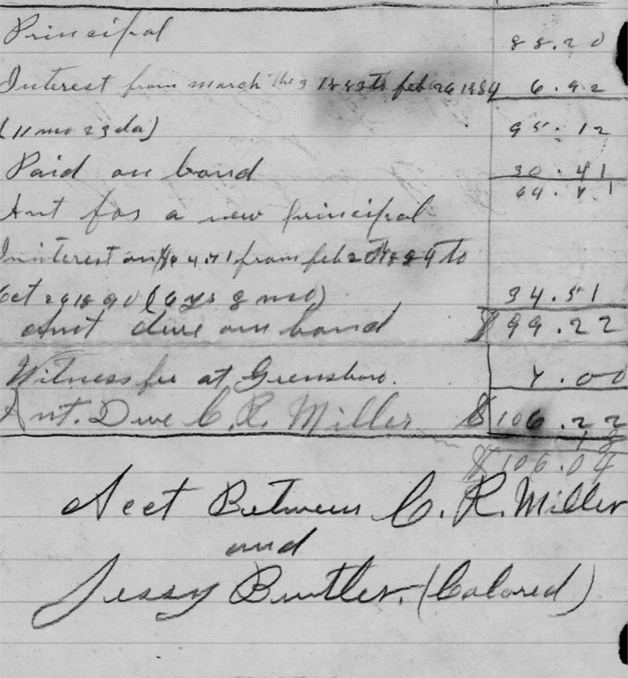 Principal 88.20
Interest from march the 3 1883 to feb 26 1884 6.92
(11 mo 23 da) 95.12
Paid on bond 30.41
Amt for a new principal 64.71
Initerest on $64.71 from feb 26 1884 to
Oct 26 1890 (6 ys 8 mo) 34.51
Amt due on bond $99.22
Witness fee at Greensboro. 7.00
Amt. Due C. R. Miller $106.22
18
$106.04
Acct Between C. R. Miller
and
Jessy Buttler. (Colored)